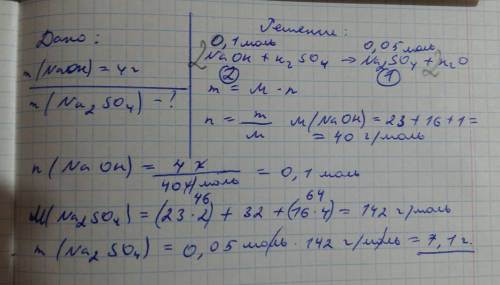 Дано:
m(NaOH)=4г
m(Na2SO4)-?
Решение:
0,1моль 0,05моль
2NaOH+H2SO4→Na2SO4+2H2O
② ①
m = M · n
n = m/M M(NaOH)=23+16+1=
= 40 г/моль
n(NaOH) = 4г/40г/моль = 0,1 моль
46 64
M(Na2SO4) = (23·2) + 32 + (16·4) = 142 г/моль
m(Na2SO4) = 0,05 моль · 142 г/моль = 7,1 г.